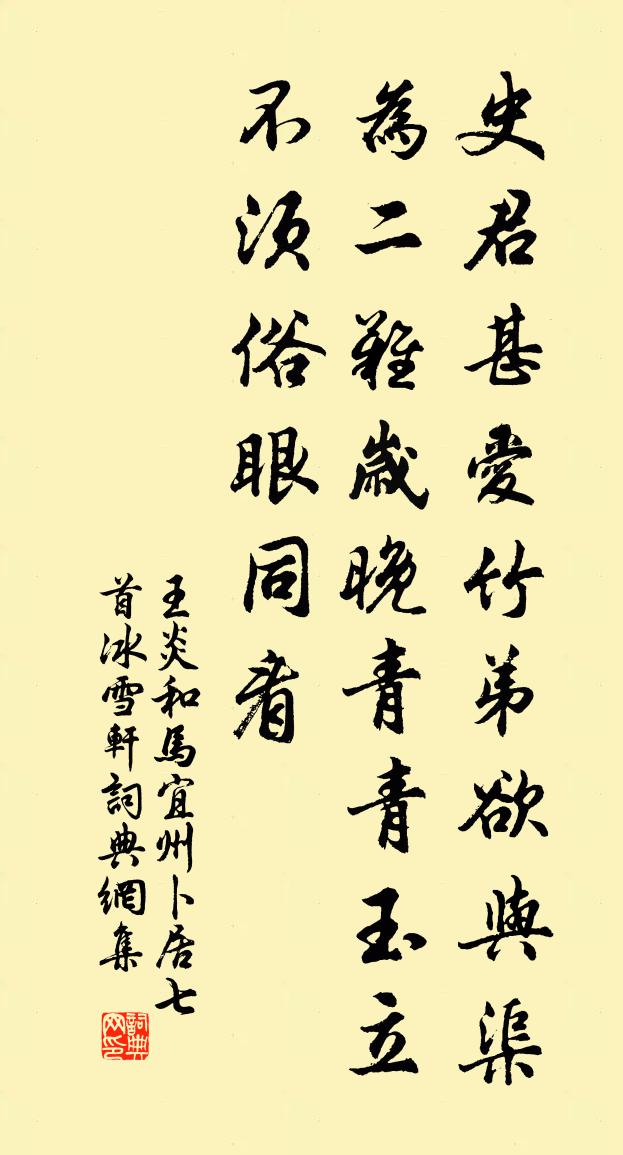 史君甚愛竹弟欲與渠
為二難歲晚青青玉立
不須俗眼同看
王炎和馬宜州卜居七
首冰雪軒詞典網集
詞典網印